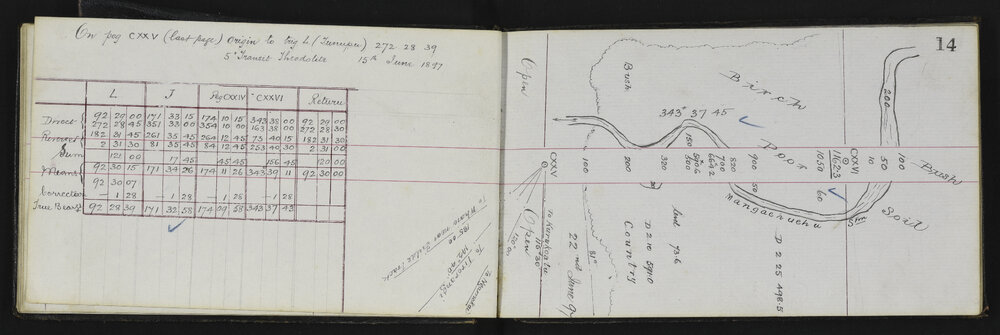 On peg CXXV (last page) origin to trig L (Turupu) 272 28 39
5" Transit Theodolite 15th June 1897
L J Peg CXXIV CXXVI Return
Direct 92 29 00 171 33 15 174 10 15 343 38 00 92 29 00
272 28 45 351 33 00 354 10 00 163 38 00 272 28 30
Reversed 182 31 45 261 35 45 264 12 45 73 40 15 182 31 30
2 31 30 81 35 45 84 12 45 253 40 30 2 31 00
Sum 121 00 17 45 45 45 156 45 120 00
Means 92 30 15 171 34 26 174 11 26 343 39 11 92 30 00
92 30 07
Correction - 1 28 - 1 28 - 1 28 - 1 28
True Bears 92 28 39 171 32 58 174 09 58 343 37 43
To Whare near Bridle Track
To
To
14
Open
Bush
Birch
343° 37' 45
200
CXXV
100
200
320
150
500
590.6
664.2
700
820
900
50
Poor
1050
1162.3
60
CXXVI
10
50
100
Bush
Mangaeruehu
Stm
Soil
Open
22nd June 97
81°
Country
D 210 590.0
Lead 73.6
D 2 25 498.5